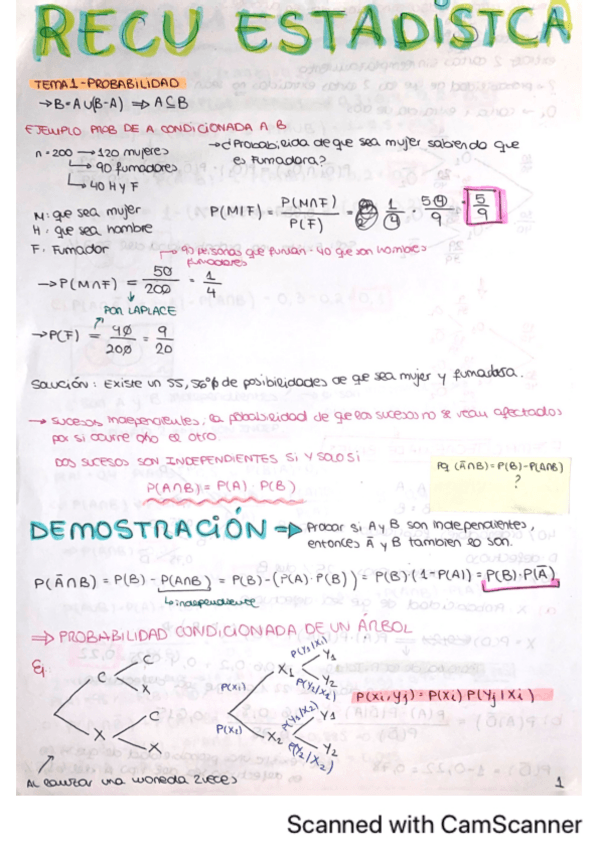 RECU ESTADÍSTCA
TEMA 1 - PROBABILIDAD
→ B = A∪(B-A) ⟹ A⊆B
EJEMPLO PROB DE A CONDICIONADA A B
n = 200 → 120 mujeres
→ 90 fumadores
→ 40 H y F
→ ¿Probabilida de que sea mujer sabiendo que
es fumadora?
M: que sea mujer
H: que sea hombre
F: Fumador
P(M|F) = P(M∩F) / P(F) = 1/4 · 5/9 = 5/9
→ 90 personas que fuman - 40 que son hombres
fumadores
→ P(M∩F) = 50/200 = 1/4
POR LAPLACE
→ P(F) = 90/200 = 9/20
Solución: Existe un 55,56% de posibilidades de que sea mujer y fumadora.
→ Sucesos independientes, la probabilidad de que los sucesos no se vean afectados
por si ocurre otro el otro.
DOS SUCESOS SON INDEPENDIENTES SI Y SOLO SI
P(A∩B) = P(A) · P(B)
Pq (Ā∩B) = P(B) - P(A∩B)
?
DEMOSTRACIÓN ⟹ Probar si A y B son independientes,
entonces Ā y B tambien lo son.
P(Ā∩B) = P(B) - P(A∩B) = P(B) - (P(A) · P(B)) = P(B) · (1 - P(A)) = P(B) · P(Ā)
↳ independiente
⟹ PROBABILIDAD CONDICIONADA DE UN ÁRBOL
Ej
C
C
X
X
C
X
P(X₁)
X₁
P(Y₁|X₁)
Y₁
P(Y₂|X₁)
Y₂
P(X₂)
X₂
P(Y₁|X₂)
Y₁
P(Y₂|X₂)
Y₂
P(Xi, Yj) = P(Xi) P(Yj | Xi)
Al lanzar una moneda 2 veces
1
Scanned with CamScanner